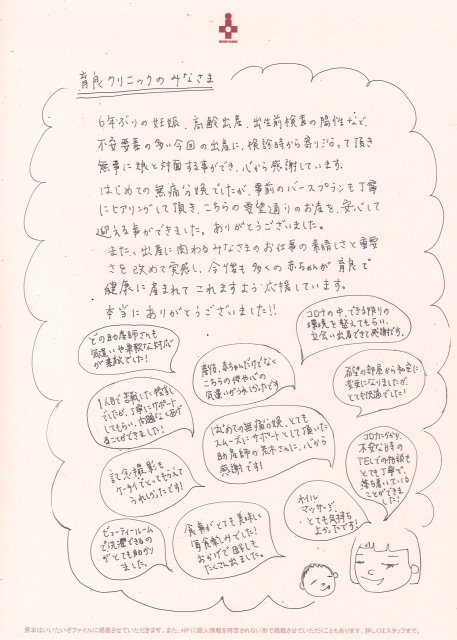 育良クリニックのみなさま
6年ぶりの妊娠、高齢出産、出生前検査の陽性など、
不安要素の多い今回の出産に、検診時から寄りそって頂き
無事に娘と対面する事ができ、心から感謝しています。
はじめての無痛分娩でしたが、事前のバースプランも丁寧
にヒアリングして頂き、こちらの要望通りのお産を、安心して
迎える事ができました。ありがとうございました。
また、出産に関わるみなさまのお仕事の素晴しさと重要
さを改めて実感し、今後も多くの赤ちゃんが育良で
健康に産まれてこれますよう応援しています。
本当にありがとうございました!!
どの助産師さんも
気遣いや柔軟な対応
が素敵でした!
産後、赤ちゃんだけでなく
こちらの体や心の
気遣いがうれしかったです
コロナの中、できる限りの
環境を整えてもらい、
立会い出産できて感謝です。
1人目で苦戦した授乳
でしたが、丁寧にサポート
してもらい、
ことができました!
はじめての無痛分娩、とても
スムーズにサポートして頂いた
助産師の荒木さんに、心から
感謝です!
希望の部屋から和室に
変更になりましたが、
とても快適でした!
記念撮影も
ケータイでとってもらえて
うれしかったです!
コロナにかかり、
不安な日々の
TELでの相談も
とても丁寧で、
落ち着いている
ことができま
した!
ビューティールーム
で洗濯できるの
がとても助かり
ました。
食事がとても美味しく
毎食楽しみでした!
おかげで母乳も
たくさん出ました。
オイル
マッサージ、
とても気持ち
よかったです!
原本はいいたいぞファイルに掲載させていただきます。また、HPに個人情報を特定されない形で掲載させていただくこともあります。詳しくはスタッフまで。